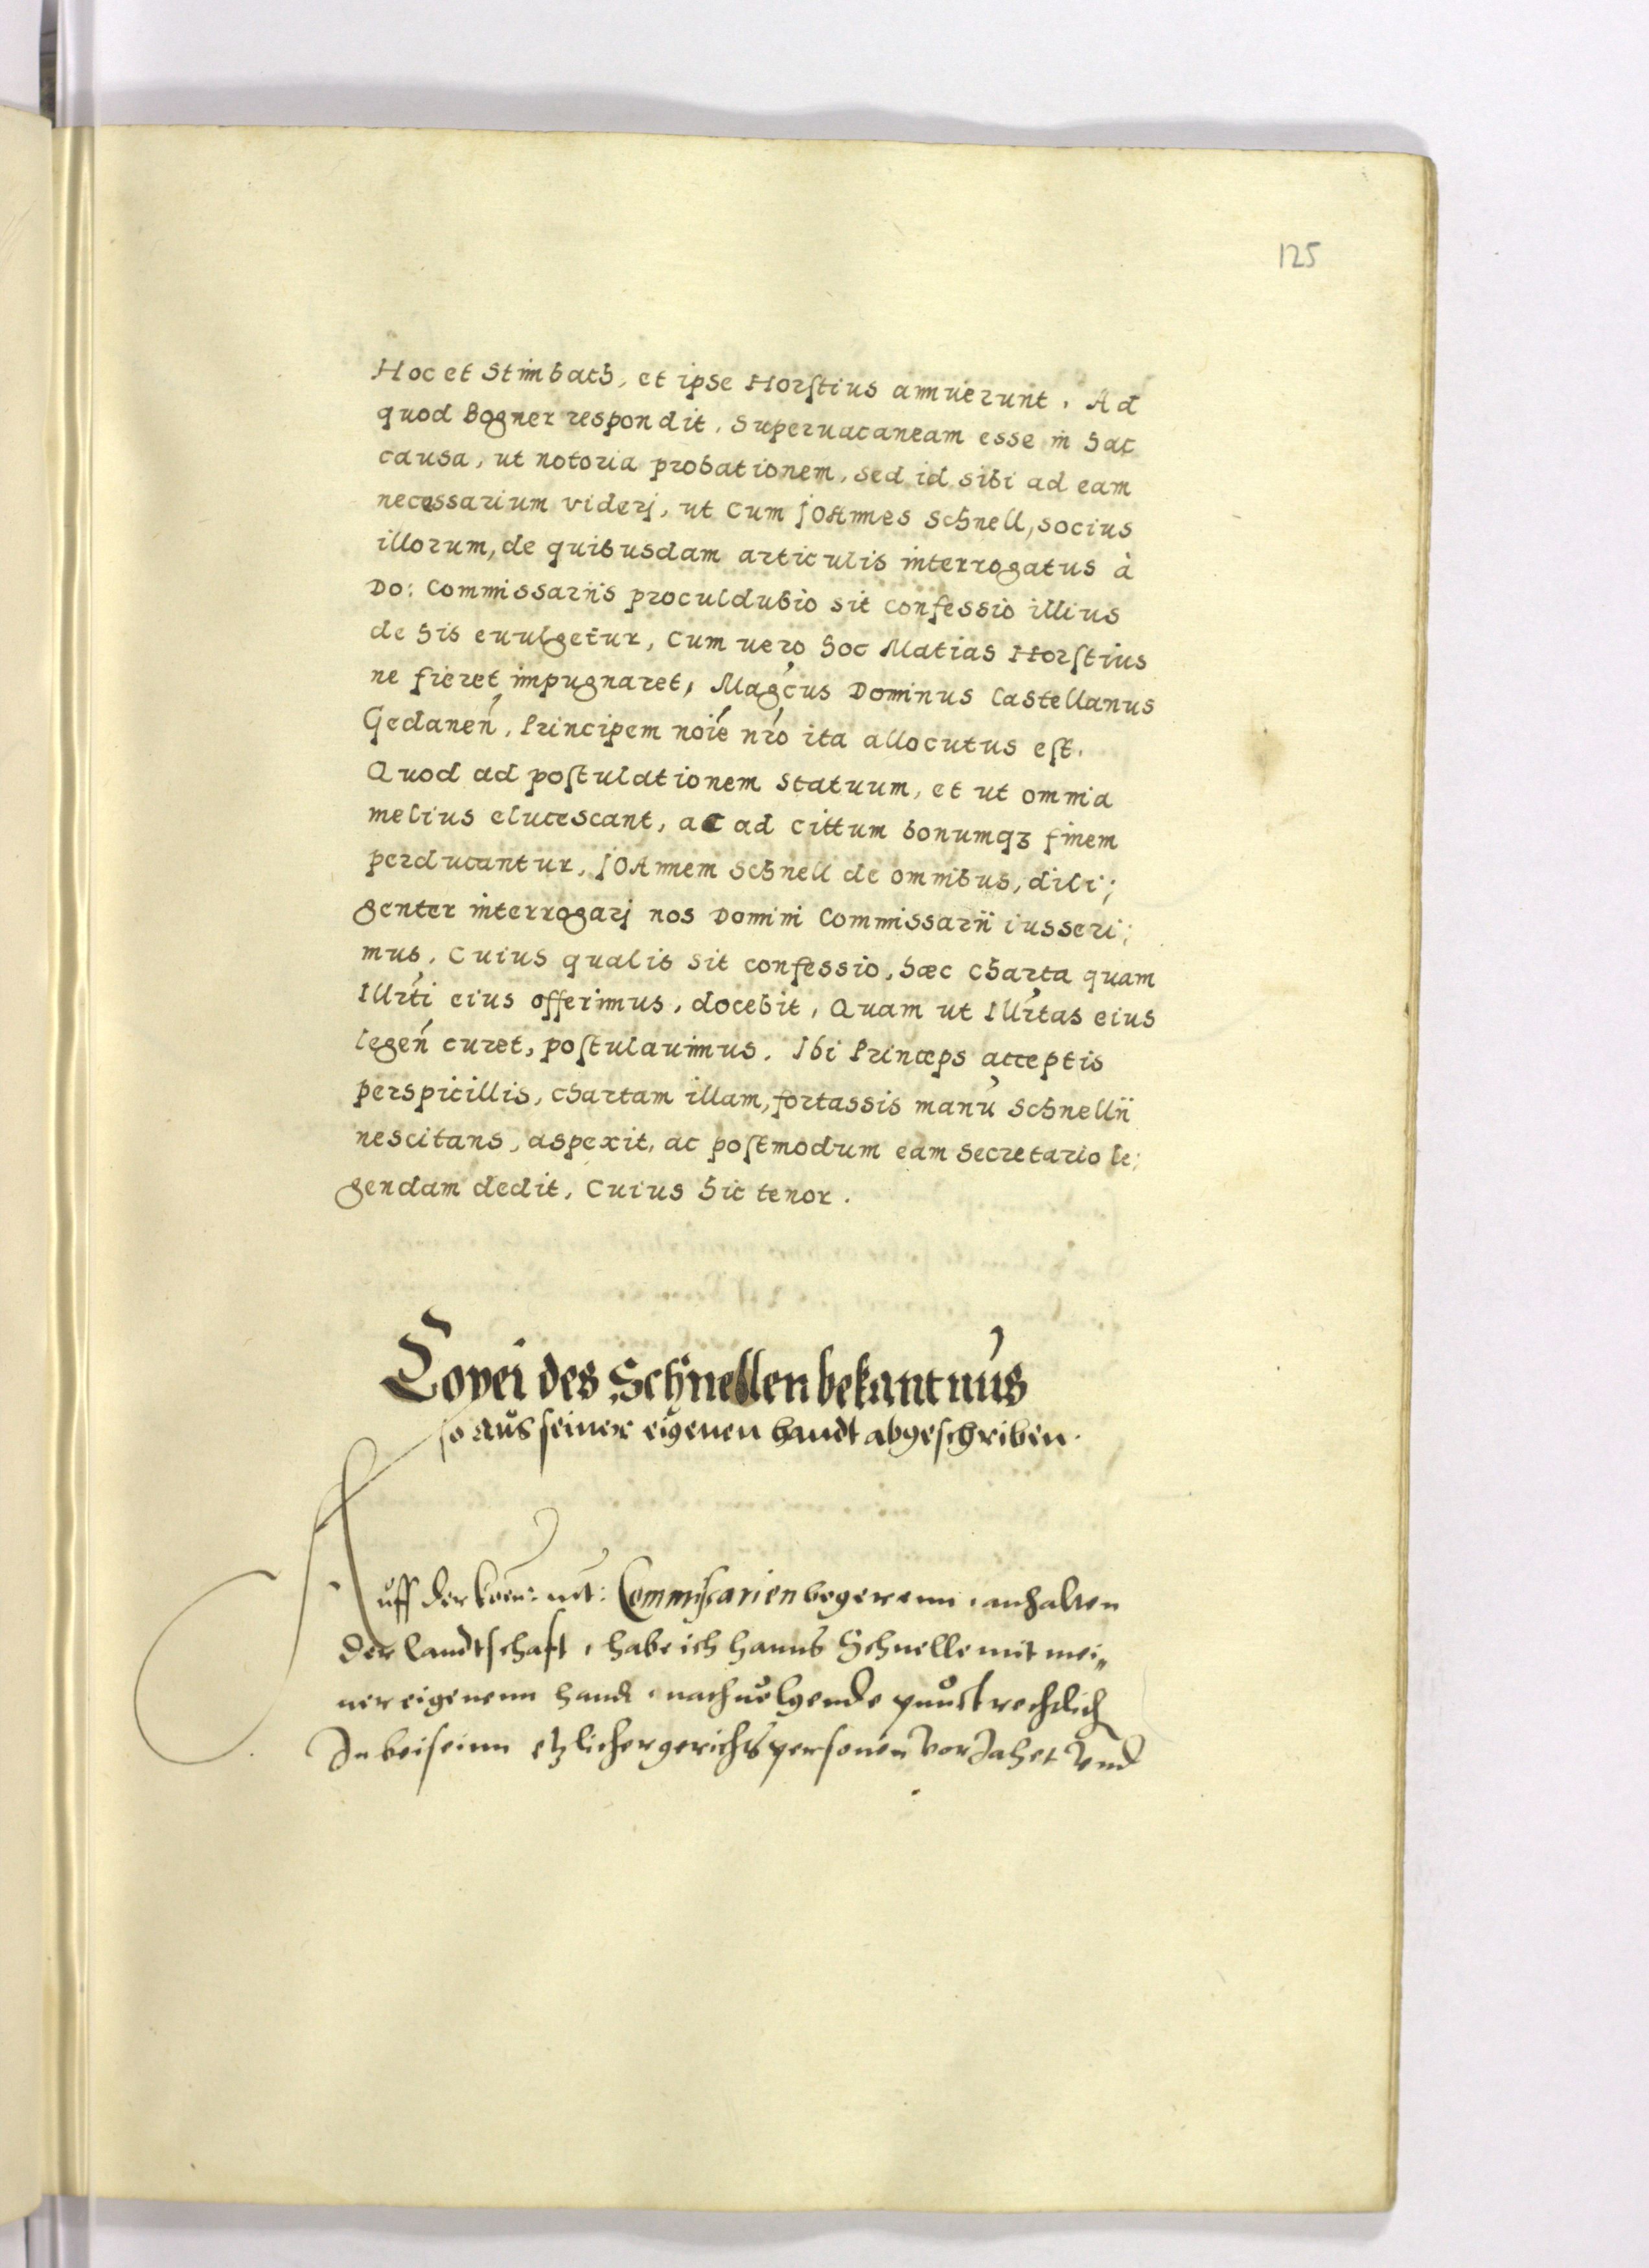 125
Hoc et Steinbach, et ipse Horstius annuerunt. Ad
quod Bogner respondit, Superuacaneam esse in hac
causa, ut notoria probationem, sed id sibi ad eam
necessarium viderj, ut cum joannes Schnell, socius
illorum, de quibusdam articulis interrogatus à
Do: Commissariis proculdubio sit confessio illius
de his euulgetur, Cum uero hoc Matias Horstius
ne fieret impugnaret, Mag͛cus Dominus Castellanus
Gedanen̄, Principem noīe nr̄o ita allocutus est.
Quod ad postulationem statuum, et ut omnia
melius elucescant, ac ad cittum bonumqꝫ finem
perducantur, joannem Schnell de omnibus, dili;
genter interrogarj nos Domini Commissarii iusseri;
mus, Cuius qualis sit confessio, hæc charta quam
Illr̄ti eius offerimus, docebit, Quam ut Illr̄tas eius
legen̄ curet, postulauimus. Ibi Princeps acceptis
perspicillis, chartam illam, fortassis manū Schnellii
nescitans, aspexit, ac postmodum eam Secretario le;
gendam dedit, Cuius hic tenor.
Copei des Schnellen bekantnus
so aus seiner eigenen handt abgeschriben.
Auff der koen: mt: Commissarien begerenn, anhalten
der landtschaft, habe ich hanns Schnelle mit mei„
ner eigenenn handt, nachuolgende punct rechtlich
In beiseinn etzlicher gerichtspersonen vor Jahet vnd